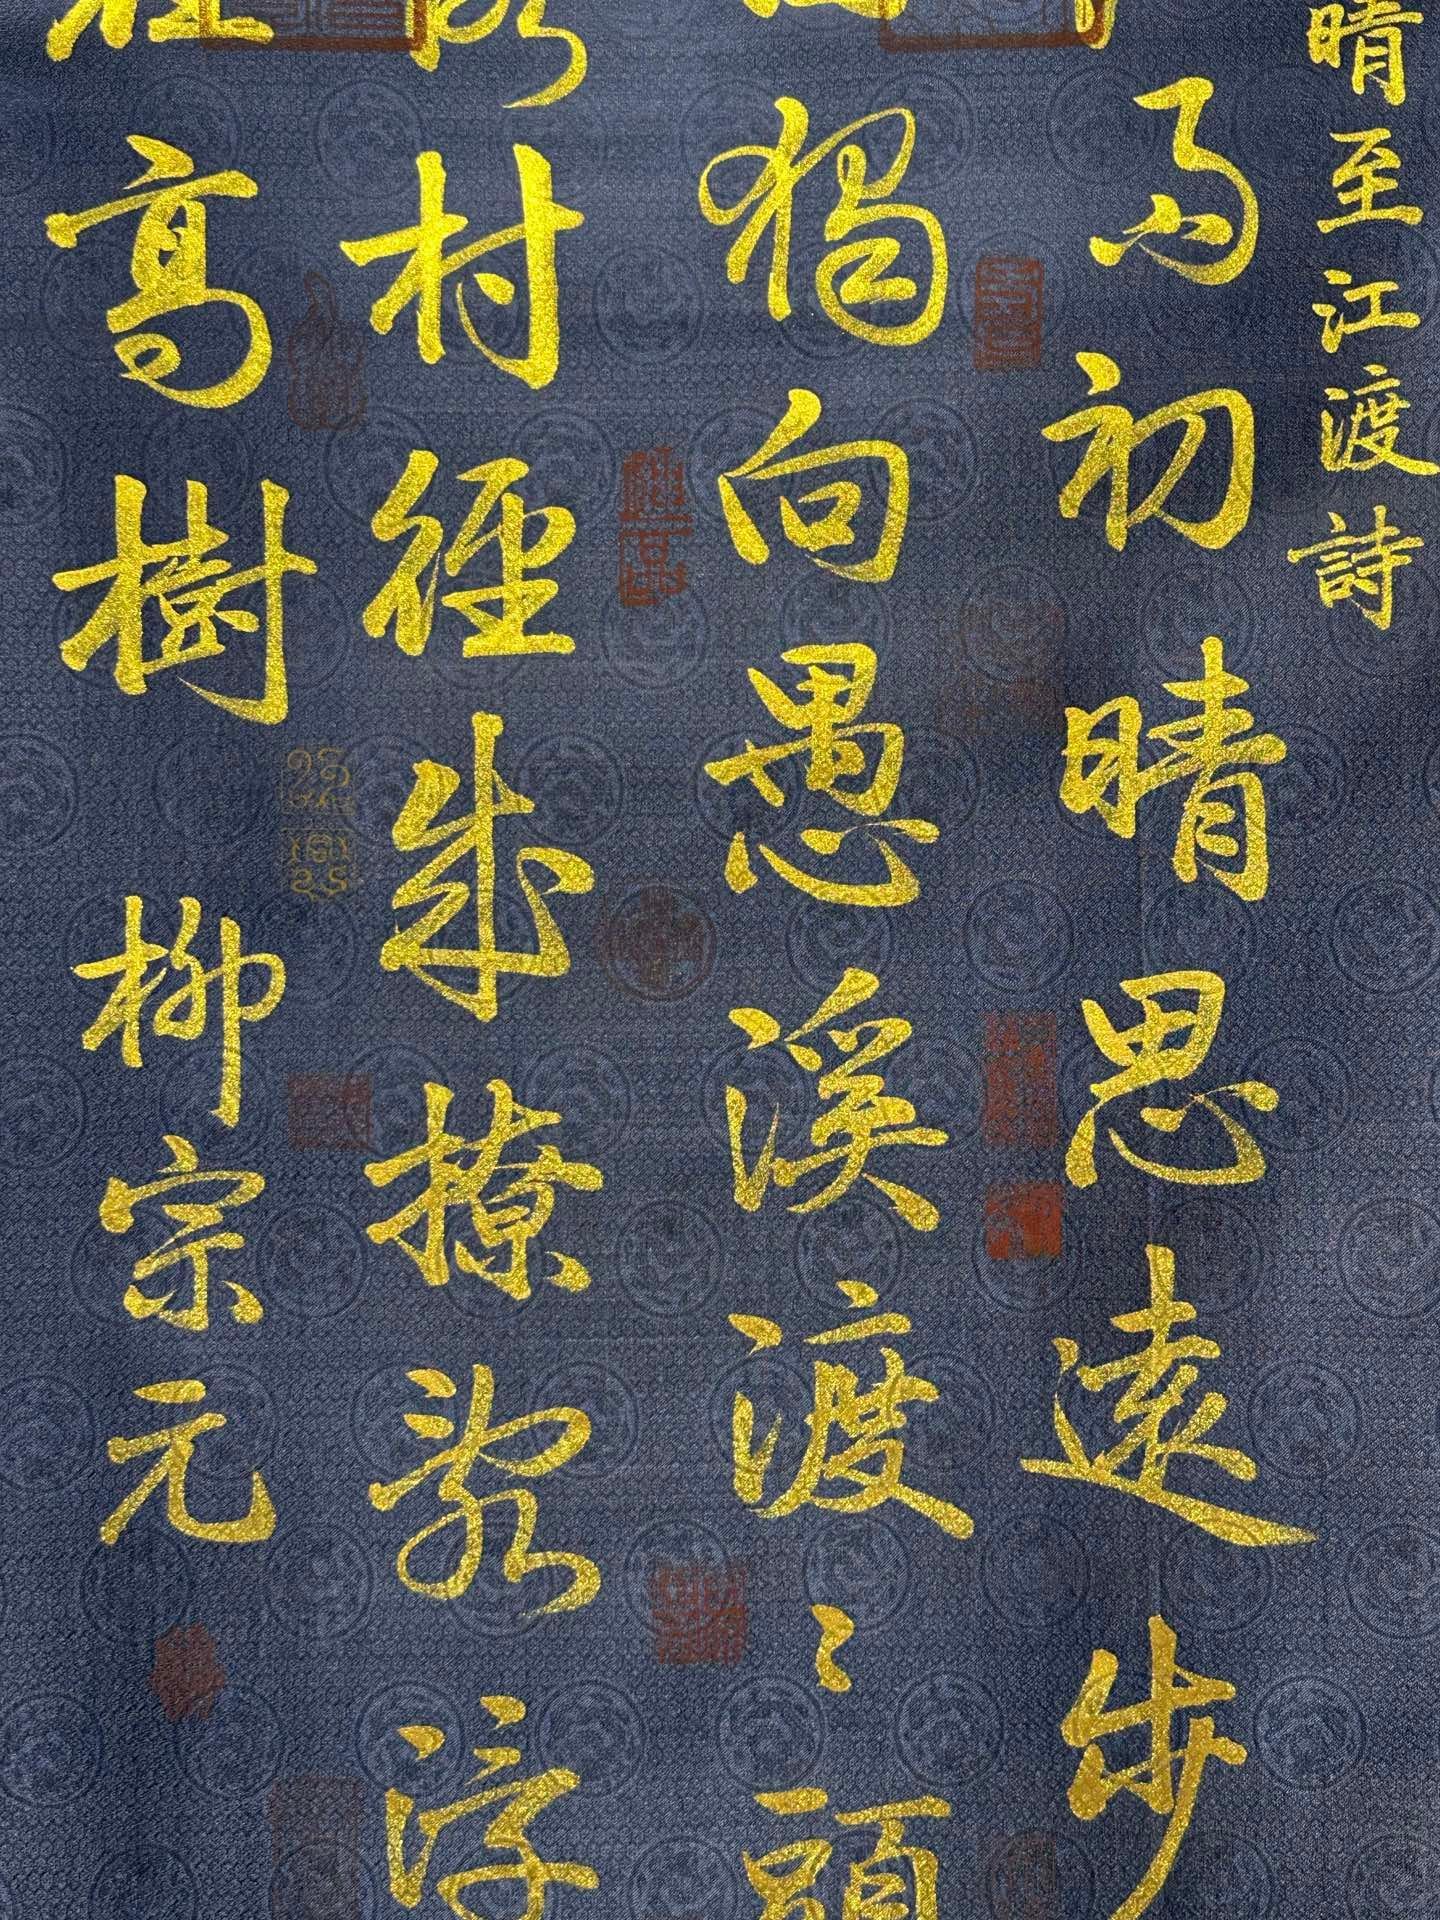 晴至江渡詩
雨初晴思遠步
獨向愚溪渡〻頭
村徑成撩亂浮
在高樹 柳宗元